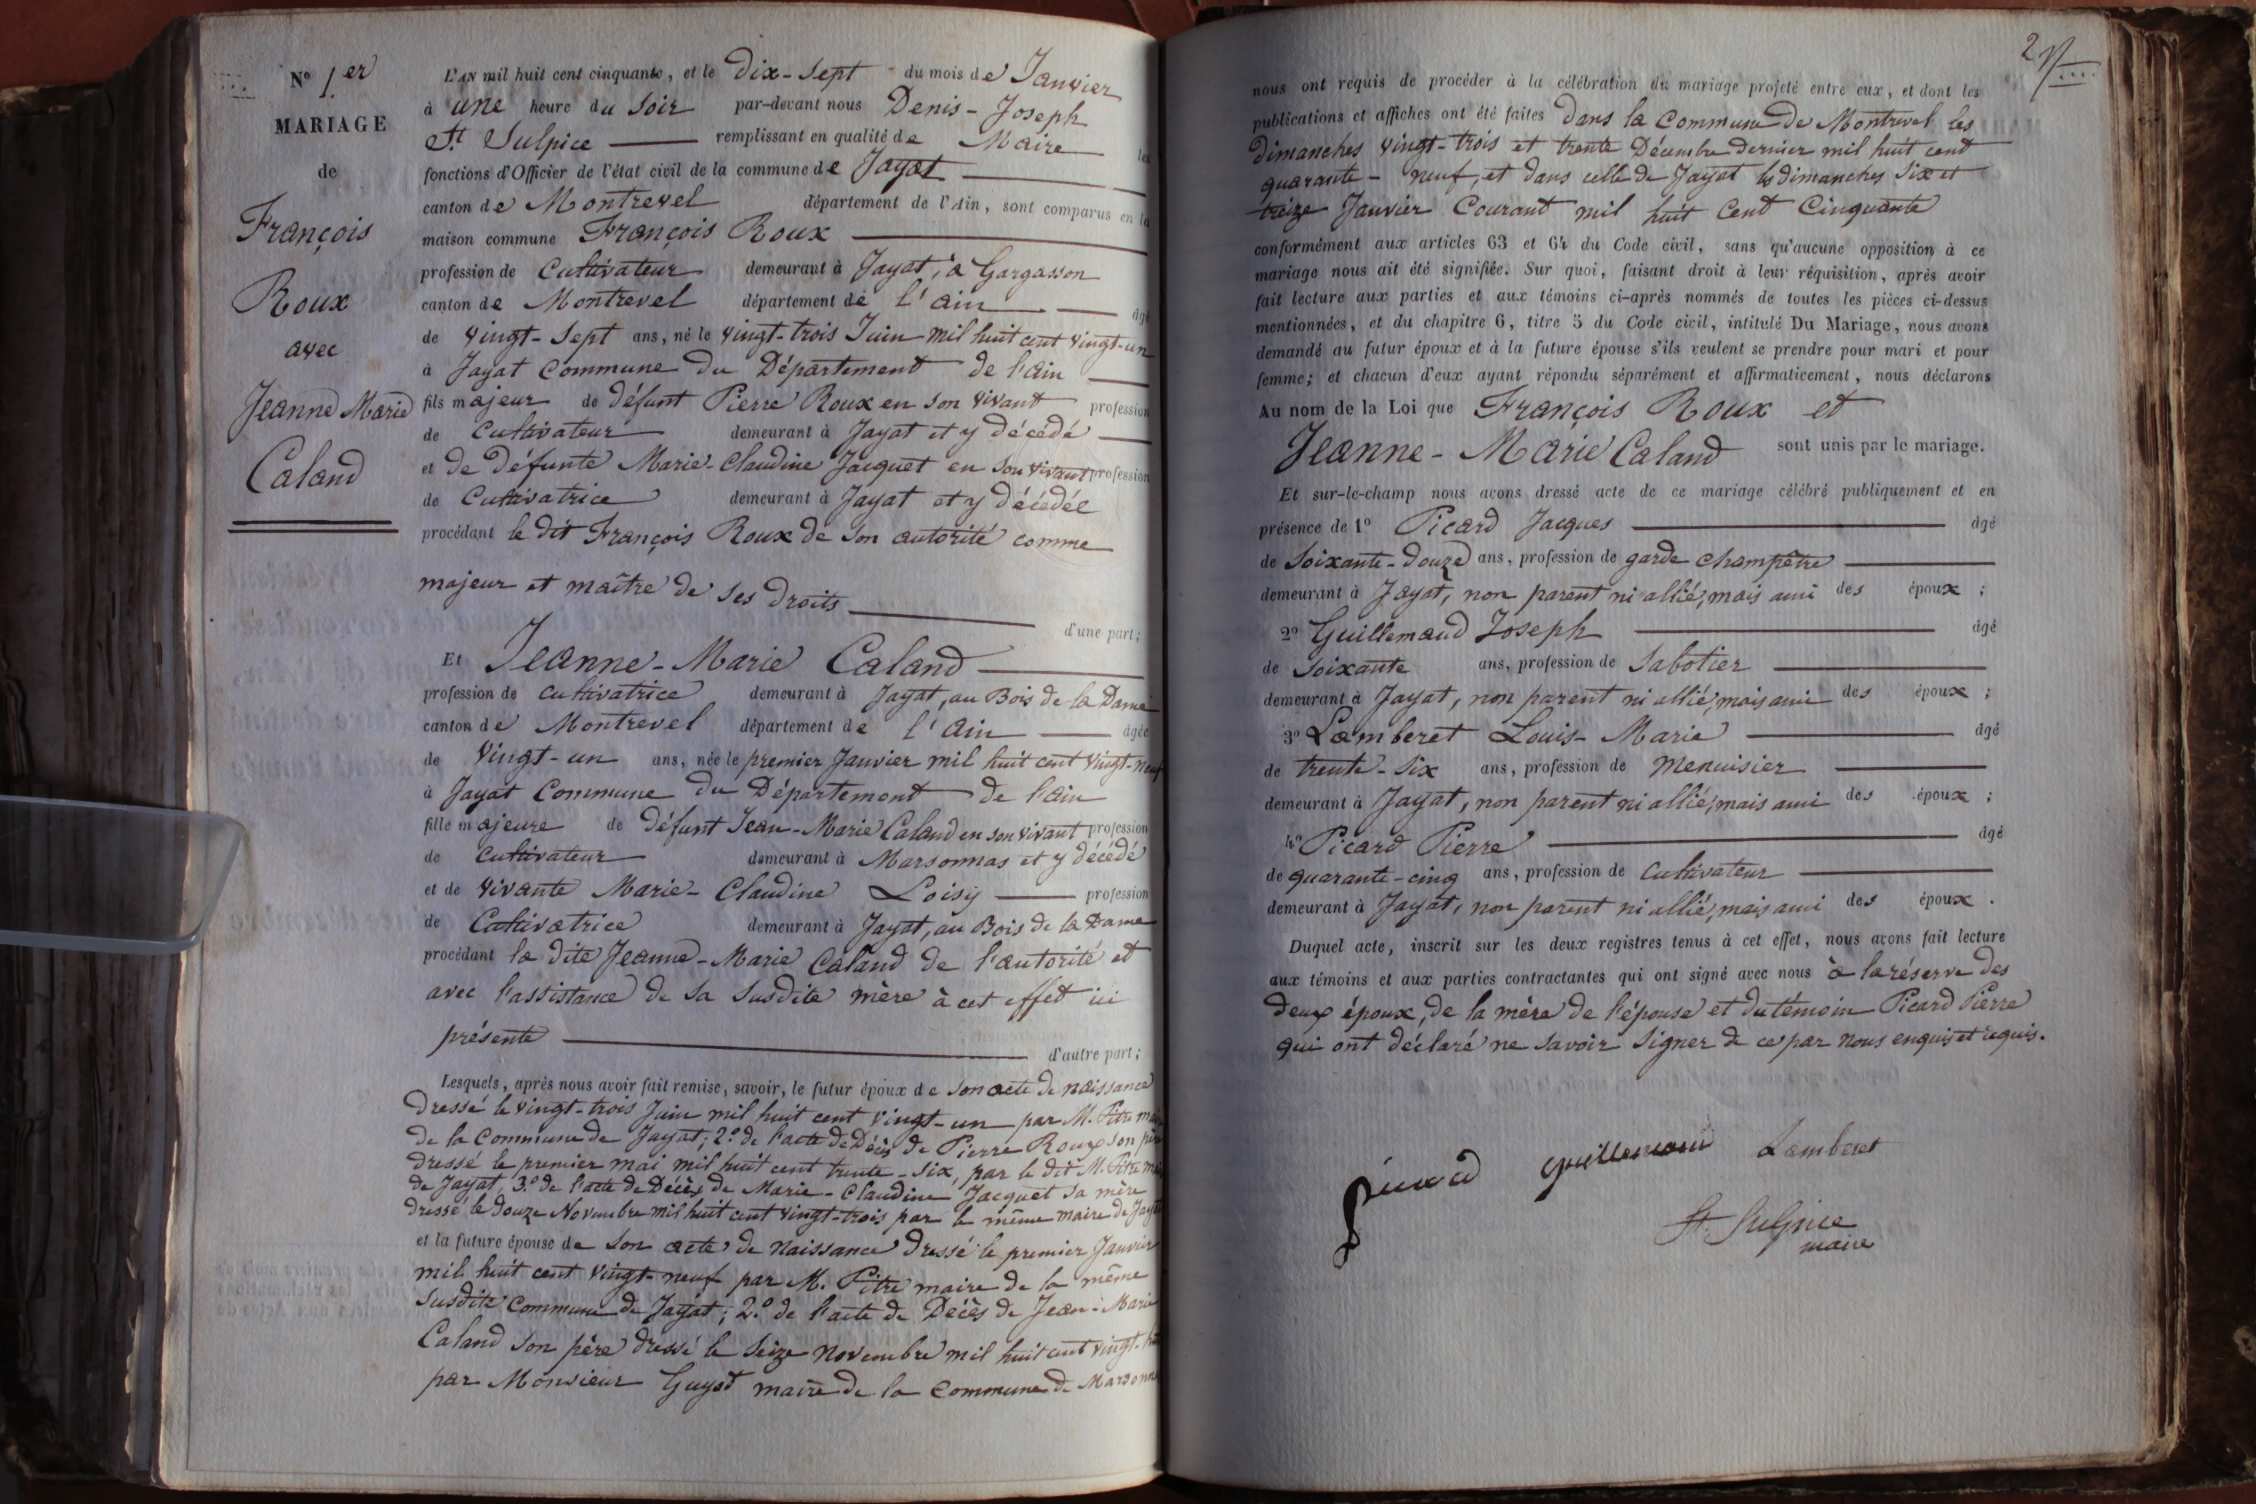 N° 1.er
MARIAGE
de
François
Roux
avec
Jeanne Marie
Caland
L'AN mil huit cent cinquante, et le dix-sept du mois de Janvier
à une heure du soir par-devant nous Denis-Joseph
St. Sulpice remplissant en qualité de Maire les
fonctions d'Officier de l'état civil de la commune de Jayat
canton de Montrevel département de l'Ain, sont comparus en la
maison commune François Roux
profession de Cultivateur demeurant à Jayat, à Gargasson
canton de Montrevel département de l'ain âgé
de vingt-sept ans, né le vingt-trois Juin mil huit cent vingt-un
à Jayat Commune du Département de l'ain
fils majeur de défunt Pierre Roux en son vivant profession
de Cultivateur demeurant à Jayat et y décédé
et de défunte Marie-Claudine Jacquet en son vivant profession
de Cultivatrice demeurant à Jayat et y décédée
procédant le dit François Roux de son autorité comme
majeur et maître de ses droits
d'une part;
Et Jeanne-Marie Caland
profession de cultivatrice demeurant à Jayat, au Bois de la Dame
canton de Montrevel département de l'ain âgée
de vingt-un ans, née le premier Janvier mil huit cent vingt-neuf
à Jayat Commune du Département de l'ain
fille majeure de défunt Jean-Marie Caland en son vivant profession
de cultivateur demeurant à Marsonnas et y décédé
et de vivante Marie-Claudine Loisy profession
de Cultivatrice demeurant à Jayat, au Bois de la Dame
procédant la dite Jeanne-Marie Caland de l'autorité et
avec l'assistance de sa susdite mère à cet effet ici
présente
d'autre part;
Lesquels, après nous avoir fait remise, savoir, le futur époux de son acte de naissance
dressé le vingt-trois Juin mil huit cent vingt-un par M. Pitre maire
de la Commune de Jayat; 2.° de l'acte de Décès de Pierre Roux son père
dressé le premier mai mil huit cent trente-six, par le dit M. Pitre maire
de Jayat, 3.° de l'acte de Décès de Marie-Claudine Jacquet sa mère
dressé le douze Novembre mil huit cent vingt-trois par le même maire de Jayat
et la future épouse de son acte de Naissance dressé le premier Janvier
mil huit cent vingt-neuf par M. Pitre maire de la même
susdite Commune de Jayat; 2.° de l'acte de Décès de Jean-Marie
Caland son père dressé le seize Novembre mil huit cent vingt-
par Monsieur Guyot maire de la Commune de Marsonnas
nous ont requis de procéder à la célébration du mariage projeté entre eux, et dont les
publications et affiches ont été faites dans la Commune de Montrevel les
dimanches vingt-trois et trente Décembre dernier mil huit cent
quarante-neuf, et dans celle de Jayat les dimanches six et
treize Janvier Courant mil huit Cent Cinquante
conformément aux articles 63 et 64 du Code civil, sans qu'aucune opposition à ce
mariage nous ait été signifiée. Sur quoi, faisant droit à leur réquisition, après avoir
fait lecture aux parties et aux témoins ci-après nommés de toutes les pièces ci-dessus
mentionnées, et du chapitre 6, titre 5 du Code civil, intitulé Du Mariage, nous avons
demandé au futur époux et à la future épouse s'ils veulent se prendre pour mari et pour
femme; et chacun d'eux ayant répondu séparément et affirmativement, nous déclarons
Au nom de la Loi que François Roux et
Jeanne-Marie Caland sont unis par le mariage.
Et sur-le-champ nous avons dressé acte de ce mariage célébré publiquement et en
présence de 1° Picard Jacques âgé
de soixante-douze ans, profession de garde champêtre
demeurant à Jayat, non parent ni allié, mais ami des époux;
2° Guillemaud Joseph âgé
de soixante ans, profession de Sabotier
demeurant à Jayat, non parent ni allié, mais ami des époux;
3° Lamberet Louis-Marie âgé
de trente-six ans, profession de menuisier
demeurant à Jayat, non parent ni allié, mais ami des époux;
4° Picard Pierre âgé
de quarante-cinq ans, profession de Cultivateur
demeurant à Jayat, non parent ni allié, mais ami des époux.
Duquel acte, inscrit sur les deux registres tenus à cet effet, nous avons fait lecture
aux témoins et aux parties contractantes qui ont signé avec nous à la réserve des
deux époux, de la mère de l'épouse et du témoin Picard Pierre
qui ont déclaré ne savoir signer de ce par nous enquis et requis.
Picard Guillemaud Lamberet
St. Sulpice
maire